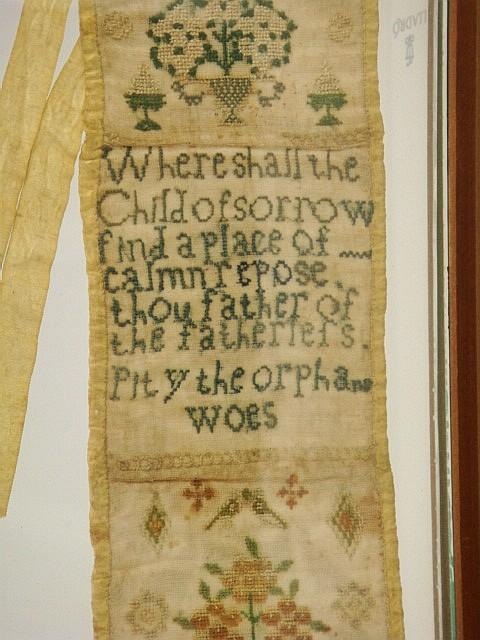 Where shall the
Child of sorrow
find a place of
calmn repose.
thou father of
the fatherless.
Pity the orphans
woes
LLADRÓ